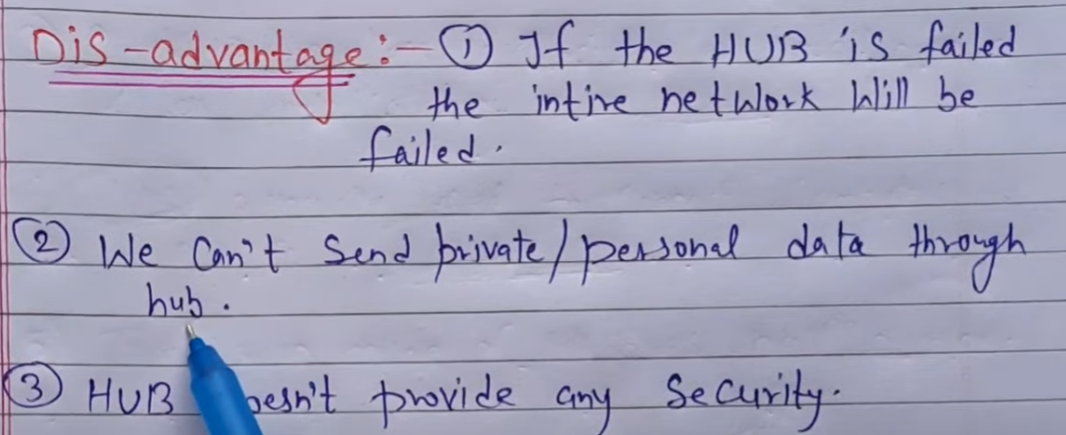 Dis-advantage:- ① If the HUB is failed
the intire network will be
failed.
② We Can't Send private/personal data through
hub.
③ HUB doesn't provide any Security.